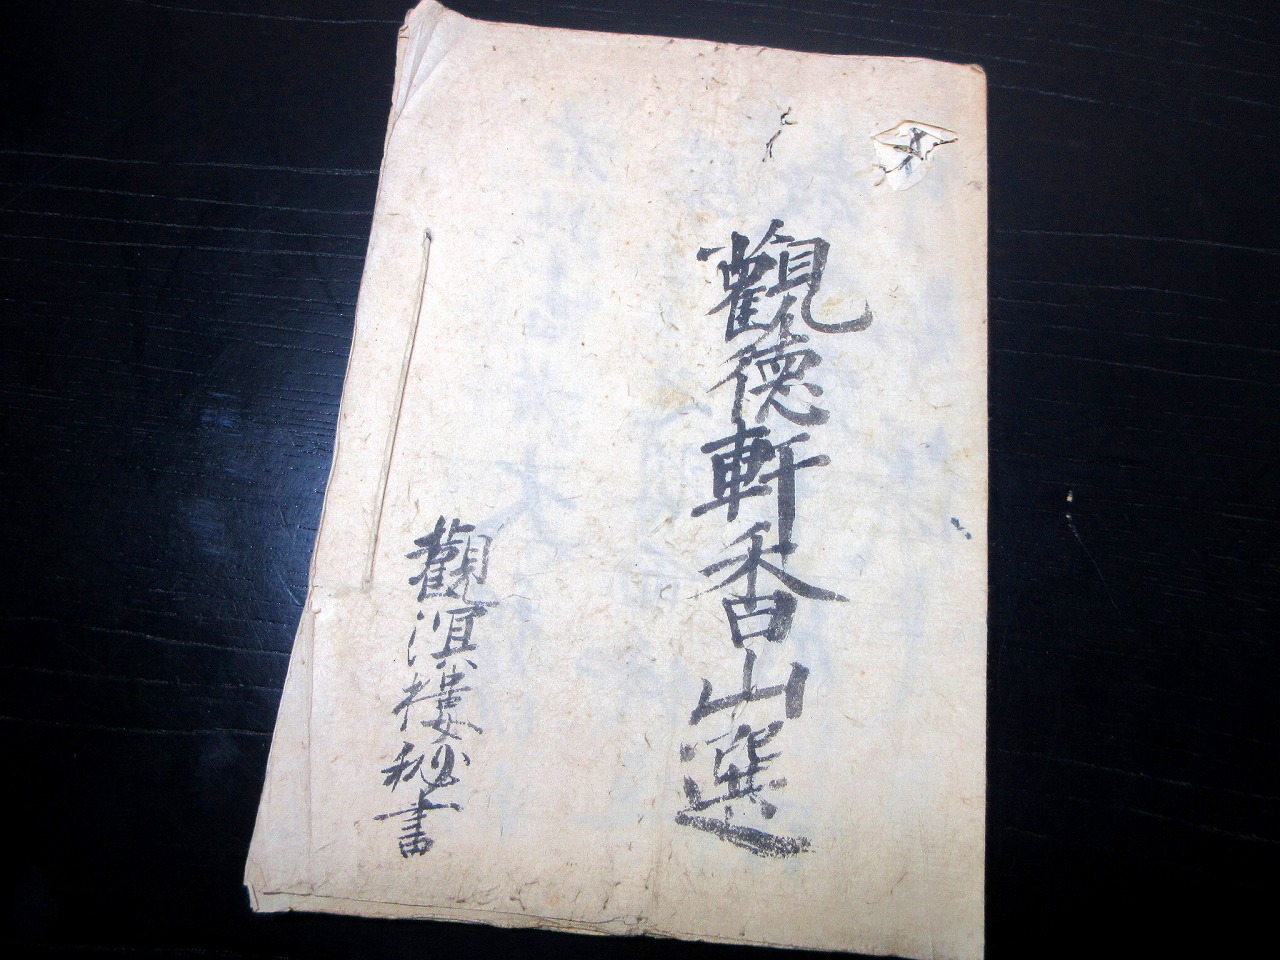 觀德軒香山選
觀溟樓秘書